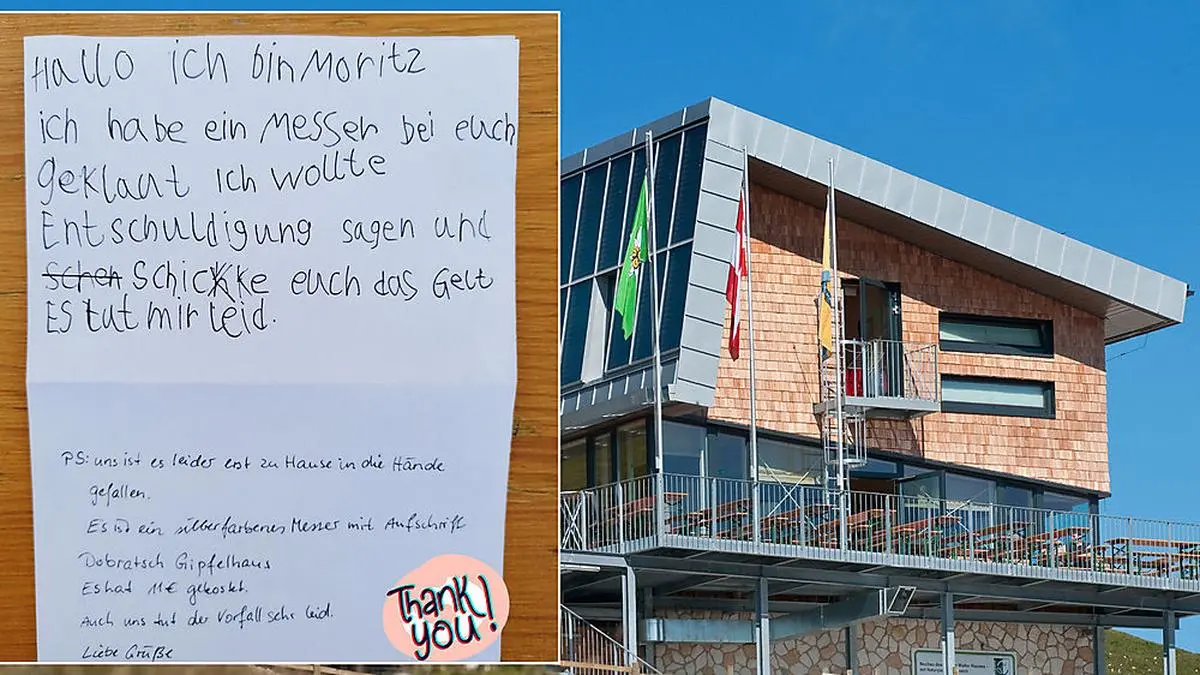 Hallo ich bin Moritz
ich habe ein Messer bei euch
geklaut ich wollte
Entschuldigung sagen und
schen schickke euch das Gelt
Es tut mir leid.
PS: uns ist es leider erst zu Hause in die Hände
gefallen.
Es ist ein silberfarbenes Messer mit Aufschrift
Dobratsch Gipfelhaus
Es hat 11€ gekostet.
Auch uns tut der Vorfall sehr leid.
Liebe Grüße
Thank
you!